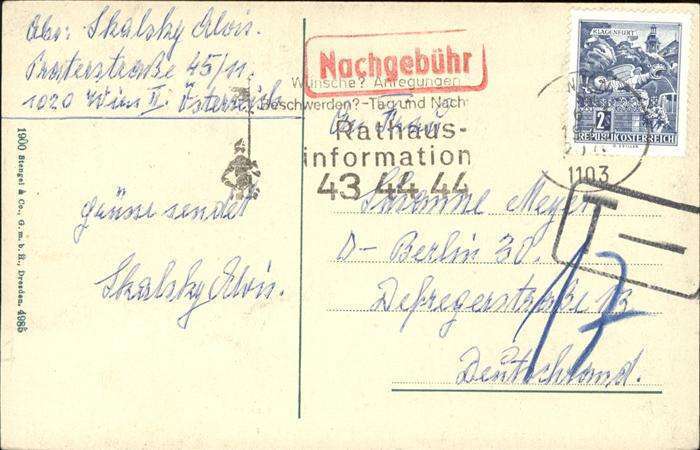 Abs: Skalsky Alois.
Praterstraße 45/11.
1020 Wien II. Österreich
Nachgebühr
Wünsche? Anregungen
Beschwerden?-Tag und Nach
Rathaus-
information
43 44 44
KLAGENFURT
2S
REPUBLIK ÖSTERREICH
1103
T
17
An Frau
Susanne Meyer
D- Berlin 30.
Defregerstraße 13
Deutschland.
grüsse sendet
Skalsky Alois.
1900 Stengel & Co., G. m. b. H., Dresden. 4985